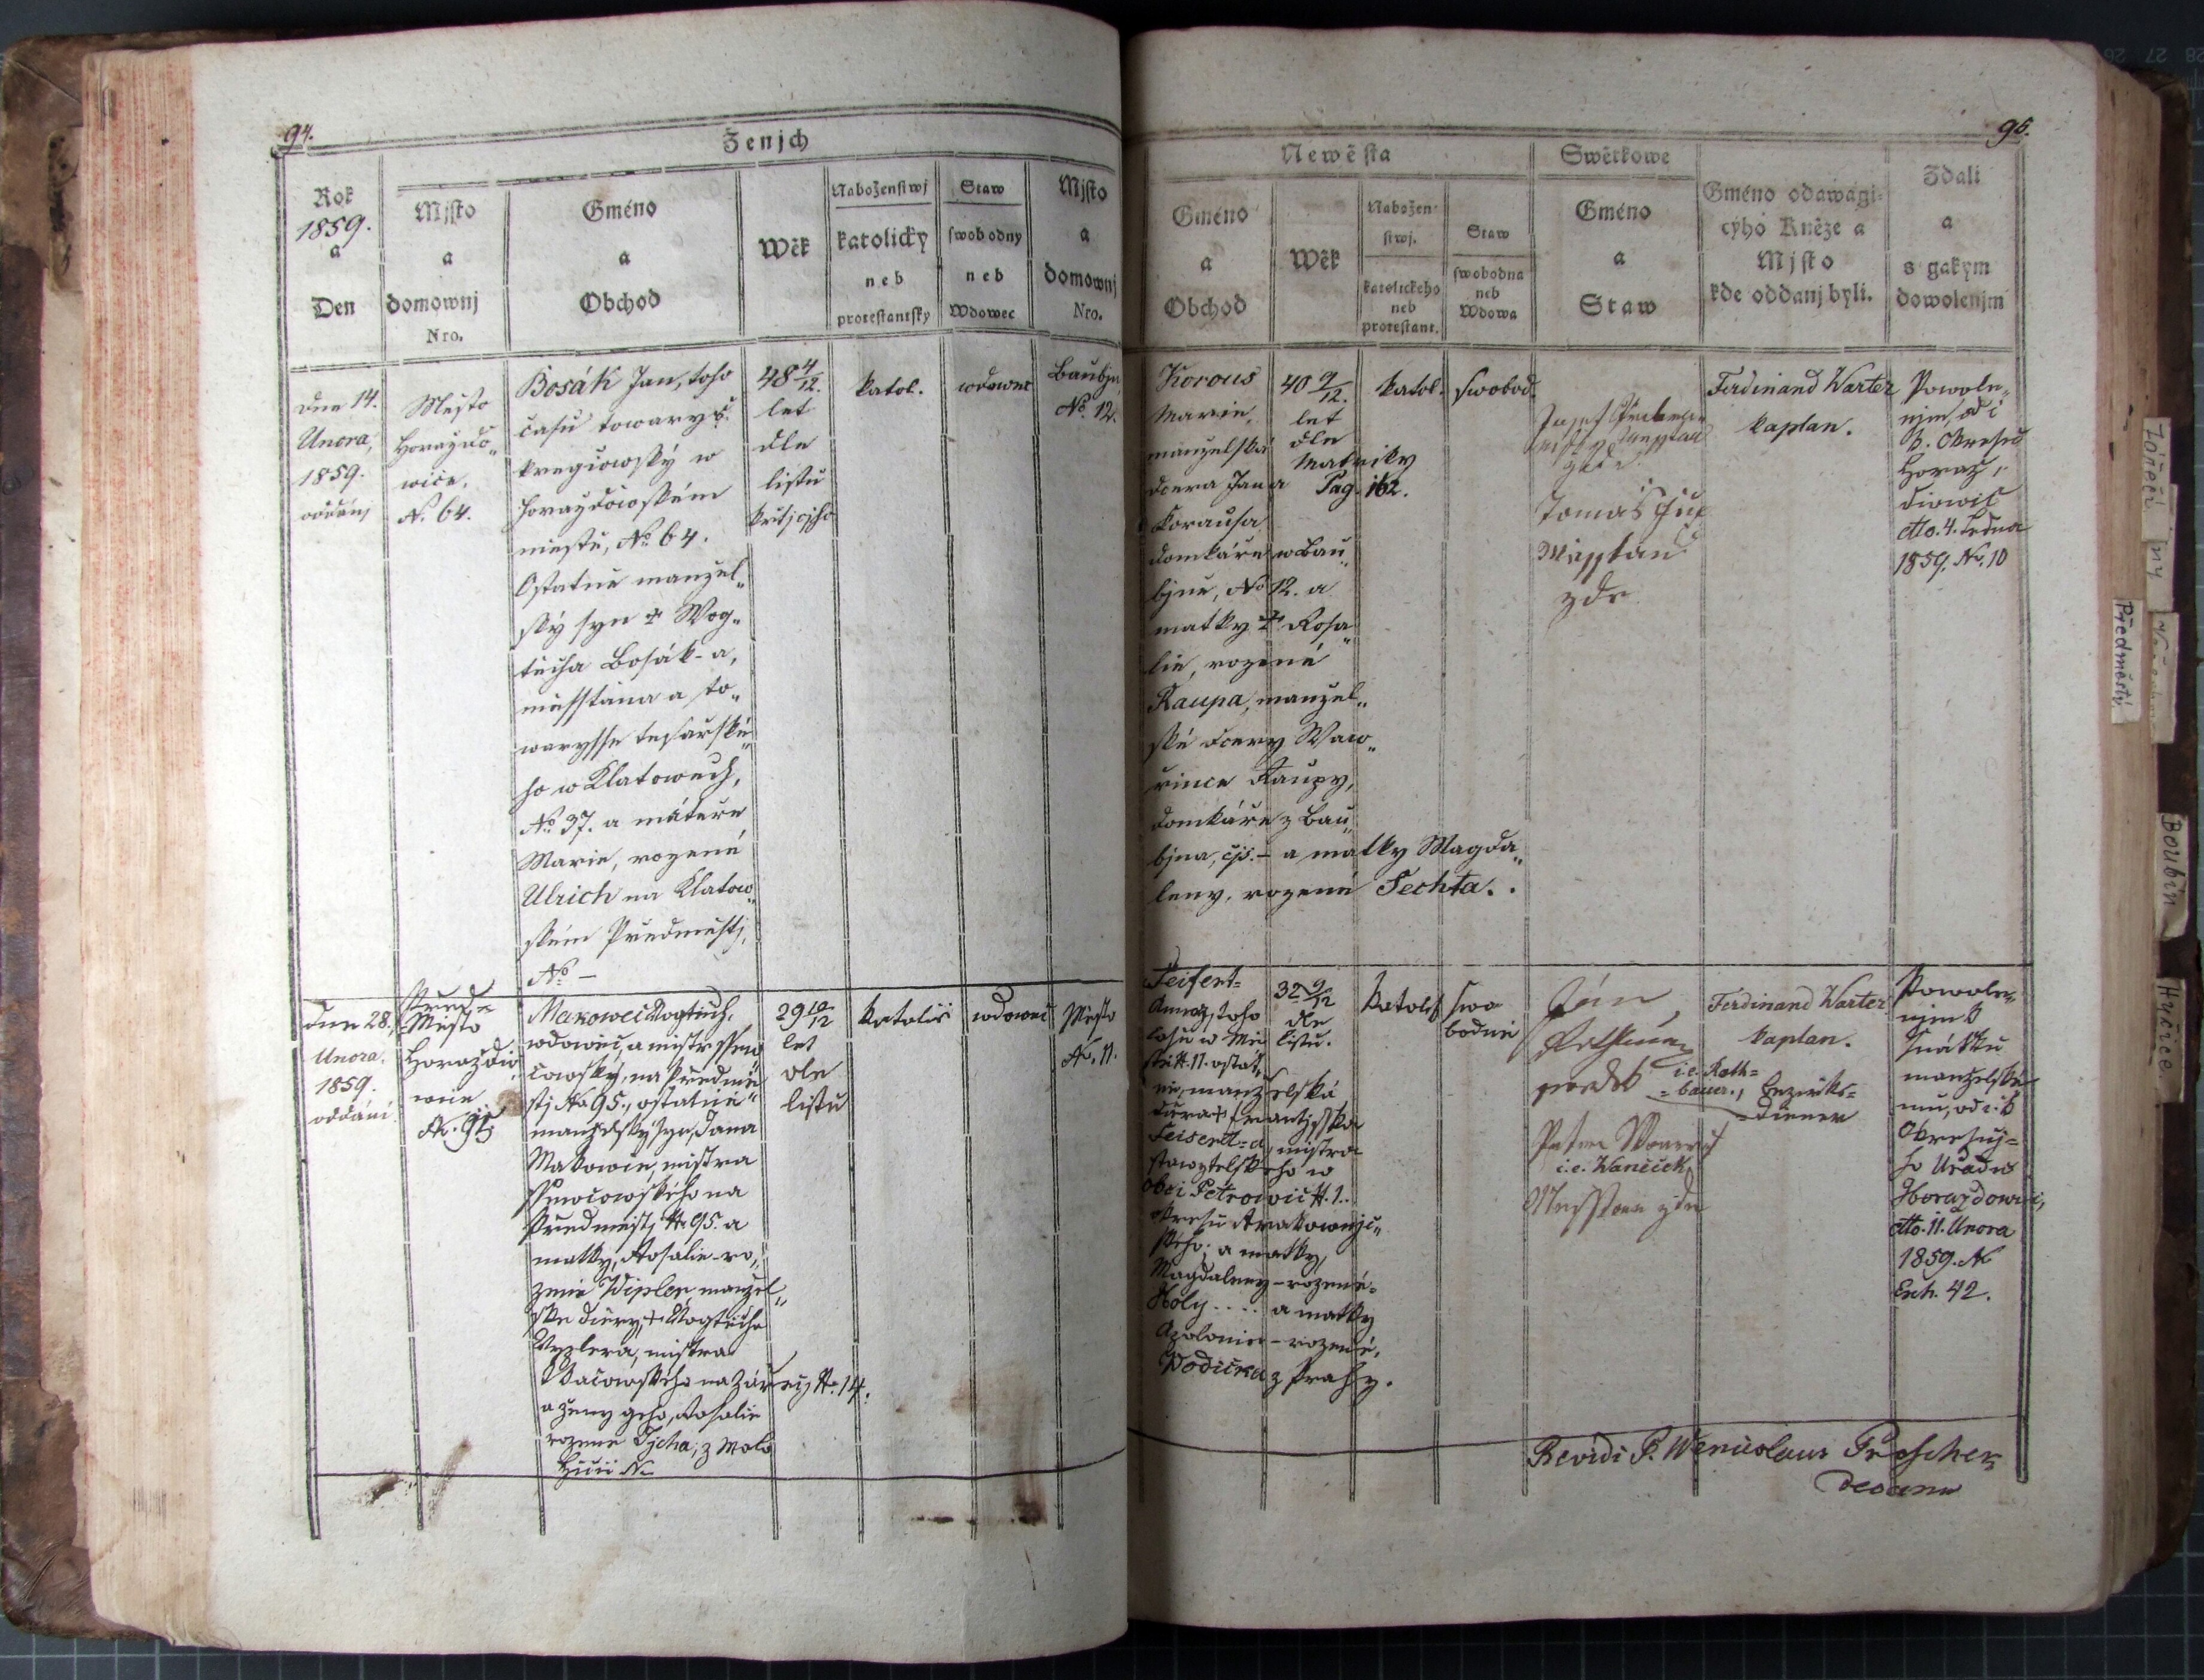 94.
Ženjch
Rok
1859.
a
Den
Mjsto
a
domownj
Nro.
Gméno
a
Obchod
Wěk
Náboženstwj
katolický
neb
protestantský
Staw
swobodny
neb
Wdowec
Mjsto
a
domownj
Nro.
dne 14.
Unora,
1859.
oddáni
Město
Horaždo„
wice,
N. 64.
Bosák Jan, toho
času towaryš
kregčowský w
Horažďowském
městě, No 64.
Ostatně manžel„
ský syn † Wog„
těcha Bosák-a,
měsstana a to„
warysse tesařské„
ho w Klatowech,
No 37. a mateře
Marie, rozené
Ulrich na Klatow„
ském Předměstj,
No –
48 4/12.
let
dle
listu
křtjcjho
katol.
wdowec
Baubjn
No. 12.
dne 28.
Unora.
1859.
oddáni
Před=
Město
Horaždio„
wice
N. 95
Makowec Wogtěch,
wdowec, a mistr ssew„
cowský, na Předmě„
stj No 95., ostatně
manželský syn, Jana
Makowce, mistra
ssewcowského na
Předměstj No 95. a
matky, Rosalie-ro„
zené Wipler manžel„
ske dcery, † Wogtěcha
Wyplera, mistra
na Zářečj No. 14.
a ženy geho, Rosalie
rozené Tjcha, z Malo
N.
29 10/12
let
dle
listu
katolic
wdowec
Město
No. 11.
95.
Newěsta
Gméno
a
Obchod
Wěk
Nábožen-
stwj.
katolického
neb
protestant.
Staw
swobodna
neb
Wdowa
Swětkowe
Gméno
a
Staw
Gméno odawagj-
cýho Kněze a
Mjsto
kde oddanj byli.
Zdali
a
s gakým
dowolenjm
Korous
Marie,
manželská
dcera Jana
Korausa
domkáře w Bau„
bjně, No 12. a
matky † Rosa„
lie, rozené
Kaupa, manžel„
ské dcery Waw„
řince Kaupy,
domkáře z Bau„
bjna, čjs. – a matky Magda„
leny, rozené Sechta.
40 9/12.
let
dle
Matriky
Pag. 162.
katol.
swobod.
Tomáš
Miesstan
zde
Ferdinand Warter
kaplan.
Powole„
njm od c
k. Okresu
Horaž„
diowic
dto. 4. Ledna
1859. No. 10
Seifert=
Anna, toho
času w Mě
stě N. 11. ostat„
ně, manželská
dcera † Frantjsska
Seifert=a, mistra
stawytelského w
obci Petrowic N. 1.
okresu Rakownjc„
kého; a matky,
Magdaleny – rozené=
Holy .... a matky
Apolonie – rozené,
Wodička z Prahy.
32 9/12
dle
listu.
katolic
swo
bodná
Ján
i.e. Roth=
=bauer., Bezirks=
=diener
i.e. Waněček
Messtan zde
Ferdinand Warter
kaplan.
Powole„
njm k
sňatku
manželské
mu, od c. k
Okresnj=
ho Uřadu
Horaždowic,
dto. 11. Unora
1859. N
Exh. 42.
Revidi P. Wenceslaus Fröscher
decanu
Zářečí
Předměstí
Boubín
Hyčice